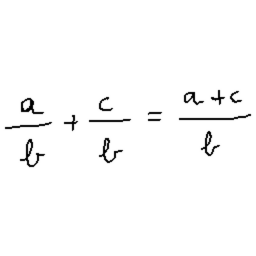 a/b + c/b = a+c/b